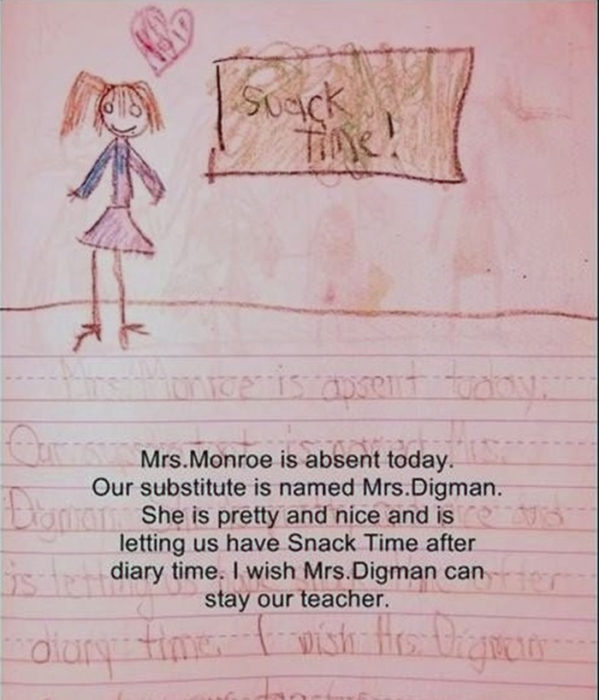 Snack
Time!
Mrs. Monroe is apsent today.
Our
Mrs.Monroe is absent today.
Our substitute is named Mrs.Digman.
She is pretty and nice and is
letting us have Snack Time after
diary time. I wish Mrs.Digman can
stay our teacher.
Digman
is letting after
diary time. I wish Mrs. Digman